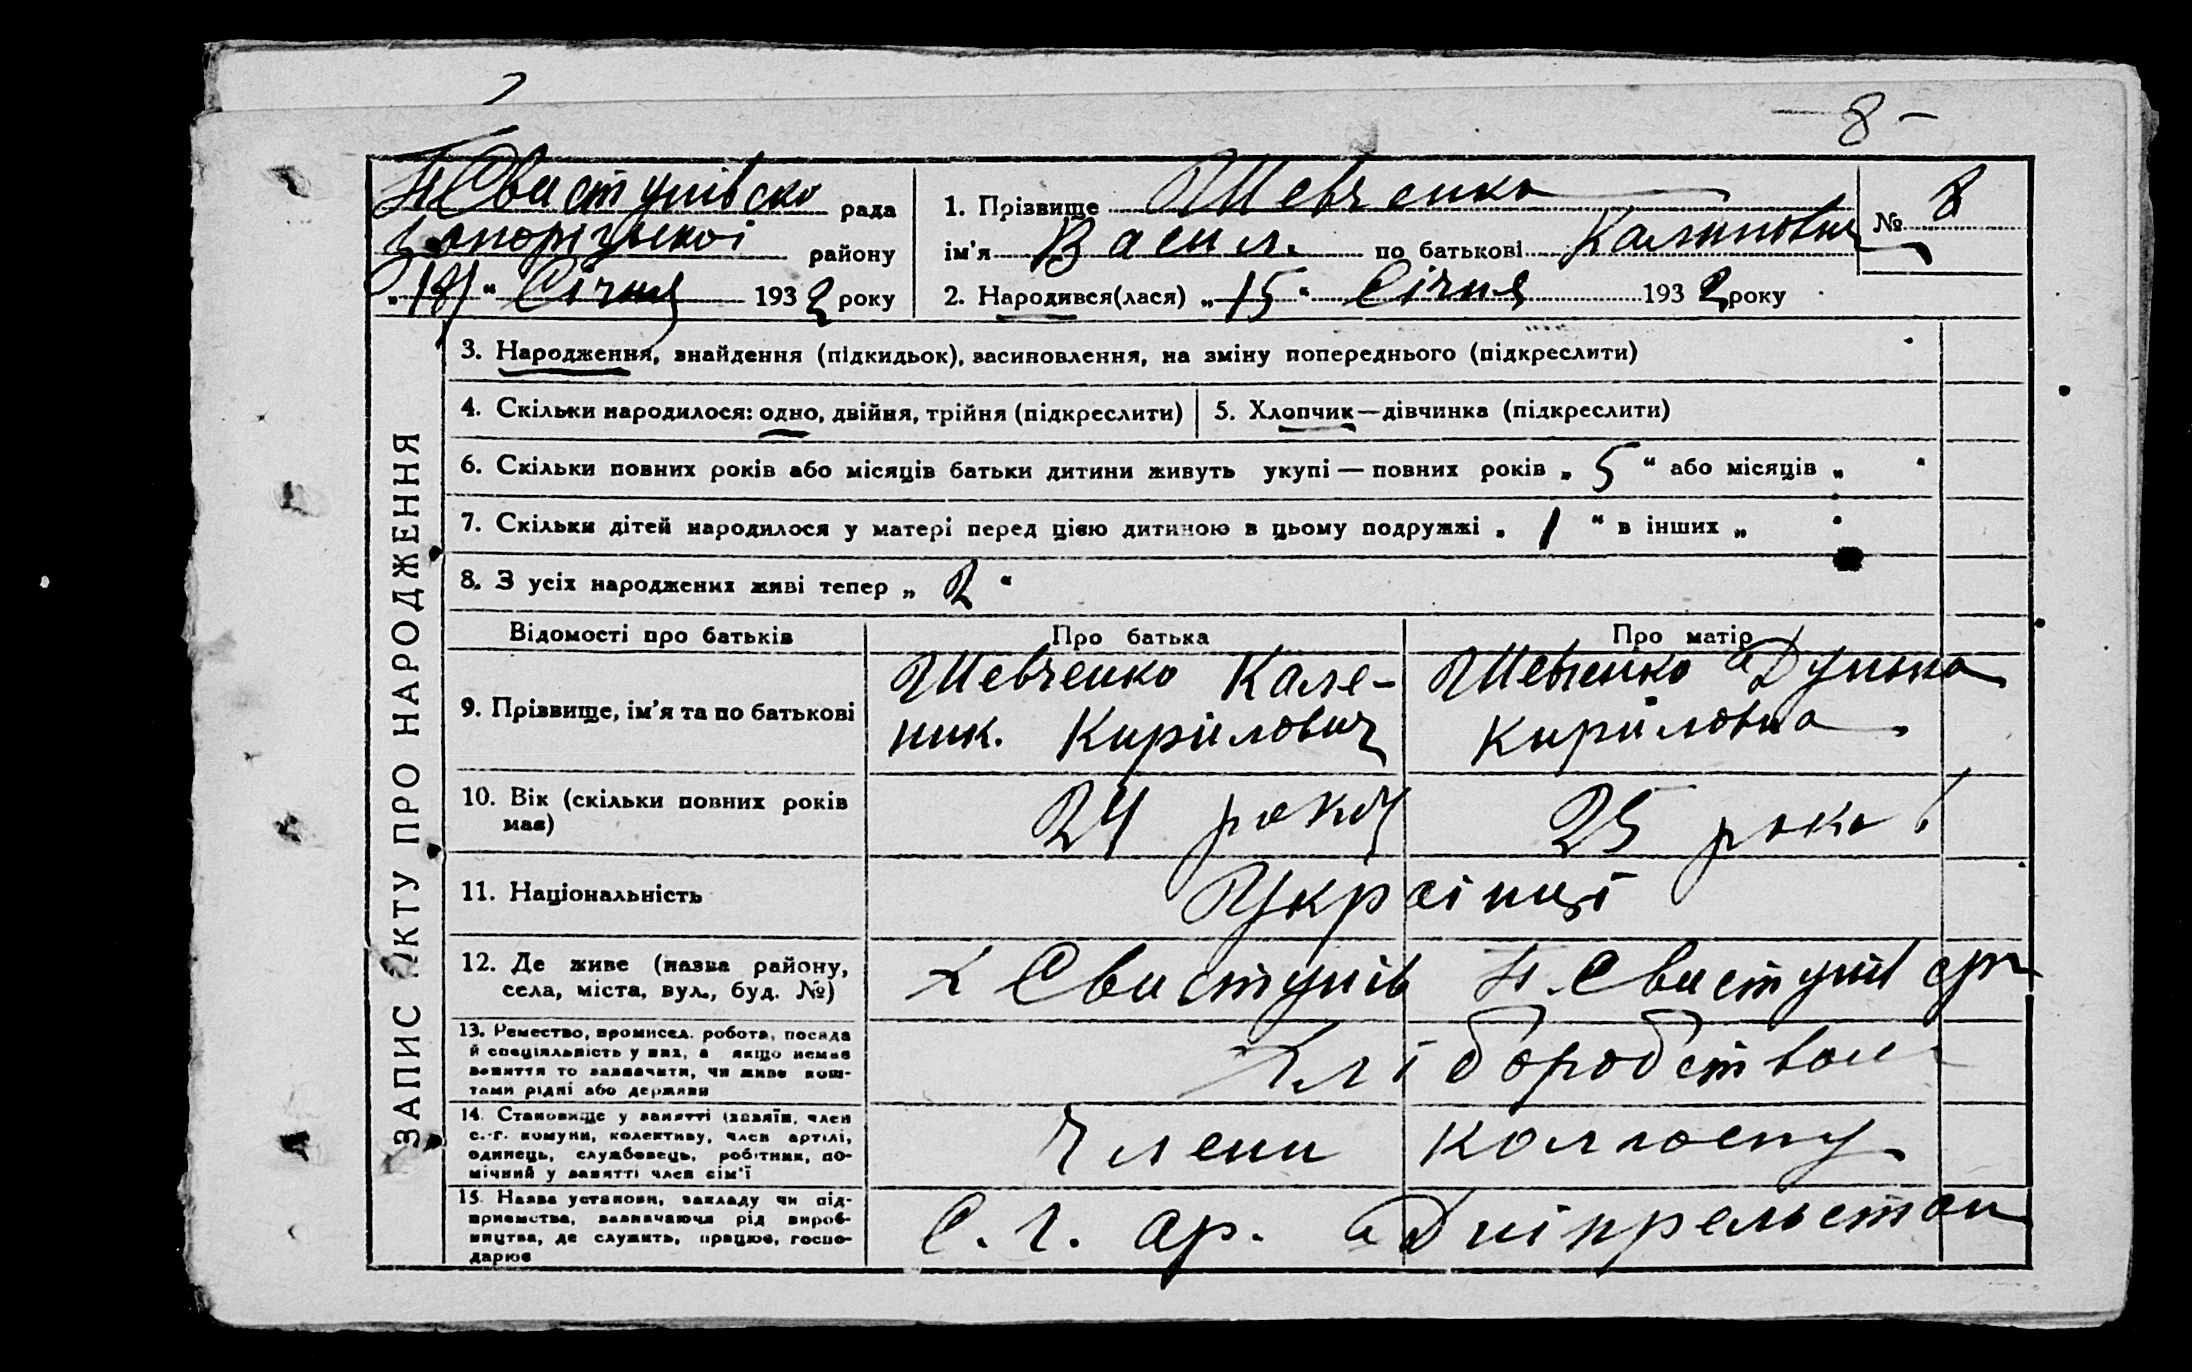 — 8 —
Н Свистунівсько рада
Запорізької району
„ 19 “ Січня 1932 року
1. Прізвище Шевченко № 8
ім’я Васил. по батькові Калинович
2. Народився(лася) „ 15 “ Січня 1932 року
ЗАПИС АКТУ ПРО НАРОДЖЕННЯ
3. Народження, знайдення (підкидьок), засиновлення, на зміну попереднього (підкреслити)
4. Скільки народилося: одно, двійня, трійня (підкреслити) 5. Хлопчик—дівчинка (підкреслити)
6. Скільки повних років або місяців батьки дитини живуть укупі — повних років „ 5 “ або місяців „ “
7. Скільки дітей народилося у матері перед цією дитиною в цьому подружжі „ 1 “ в інших „ “
8. З усіх народжених живі тепер „ 2 “
Відомості про батьків Про батька Про матір
9. Прізвище, ім’я та по батькові
Шевченко Кале-
ник. Кирилович
Шевченко Дунька
Кириловна
10. Вік (скільки повних років
має)
24 роки
25 років
11. Національність
Українці
12. Де живе (назва району,
села, міста, вул., буд. №)
х Свистунів Н. Свистунів
13. Ремество, промисел. робота, посада
й спеціяльність у них, а якщо немає
заняття то зазначити, чи живе кош-
тами рідні або держави
Хліборобством
14. Становище у занятті (хазяїн, член
с.-г. комуни, колективу, член артілі,
одинець, службовець, робітник, по-
мічний у занятті член сім’ї
Члени колгоспу
15. Назва установи, закладу чи під-
приємства, зазначаючи рід вироб-
ництва, де служить, працює, госпо-
дарює
С. г. ар. Дніпрельстан